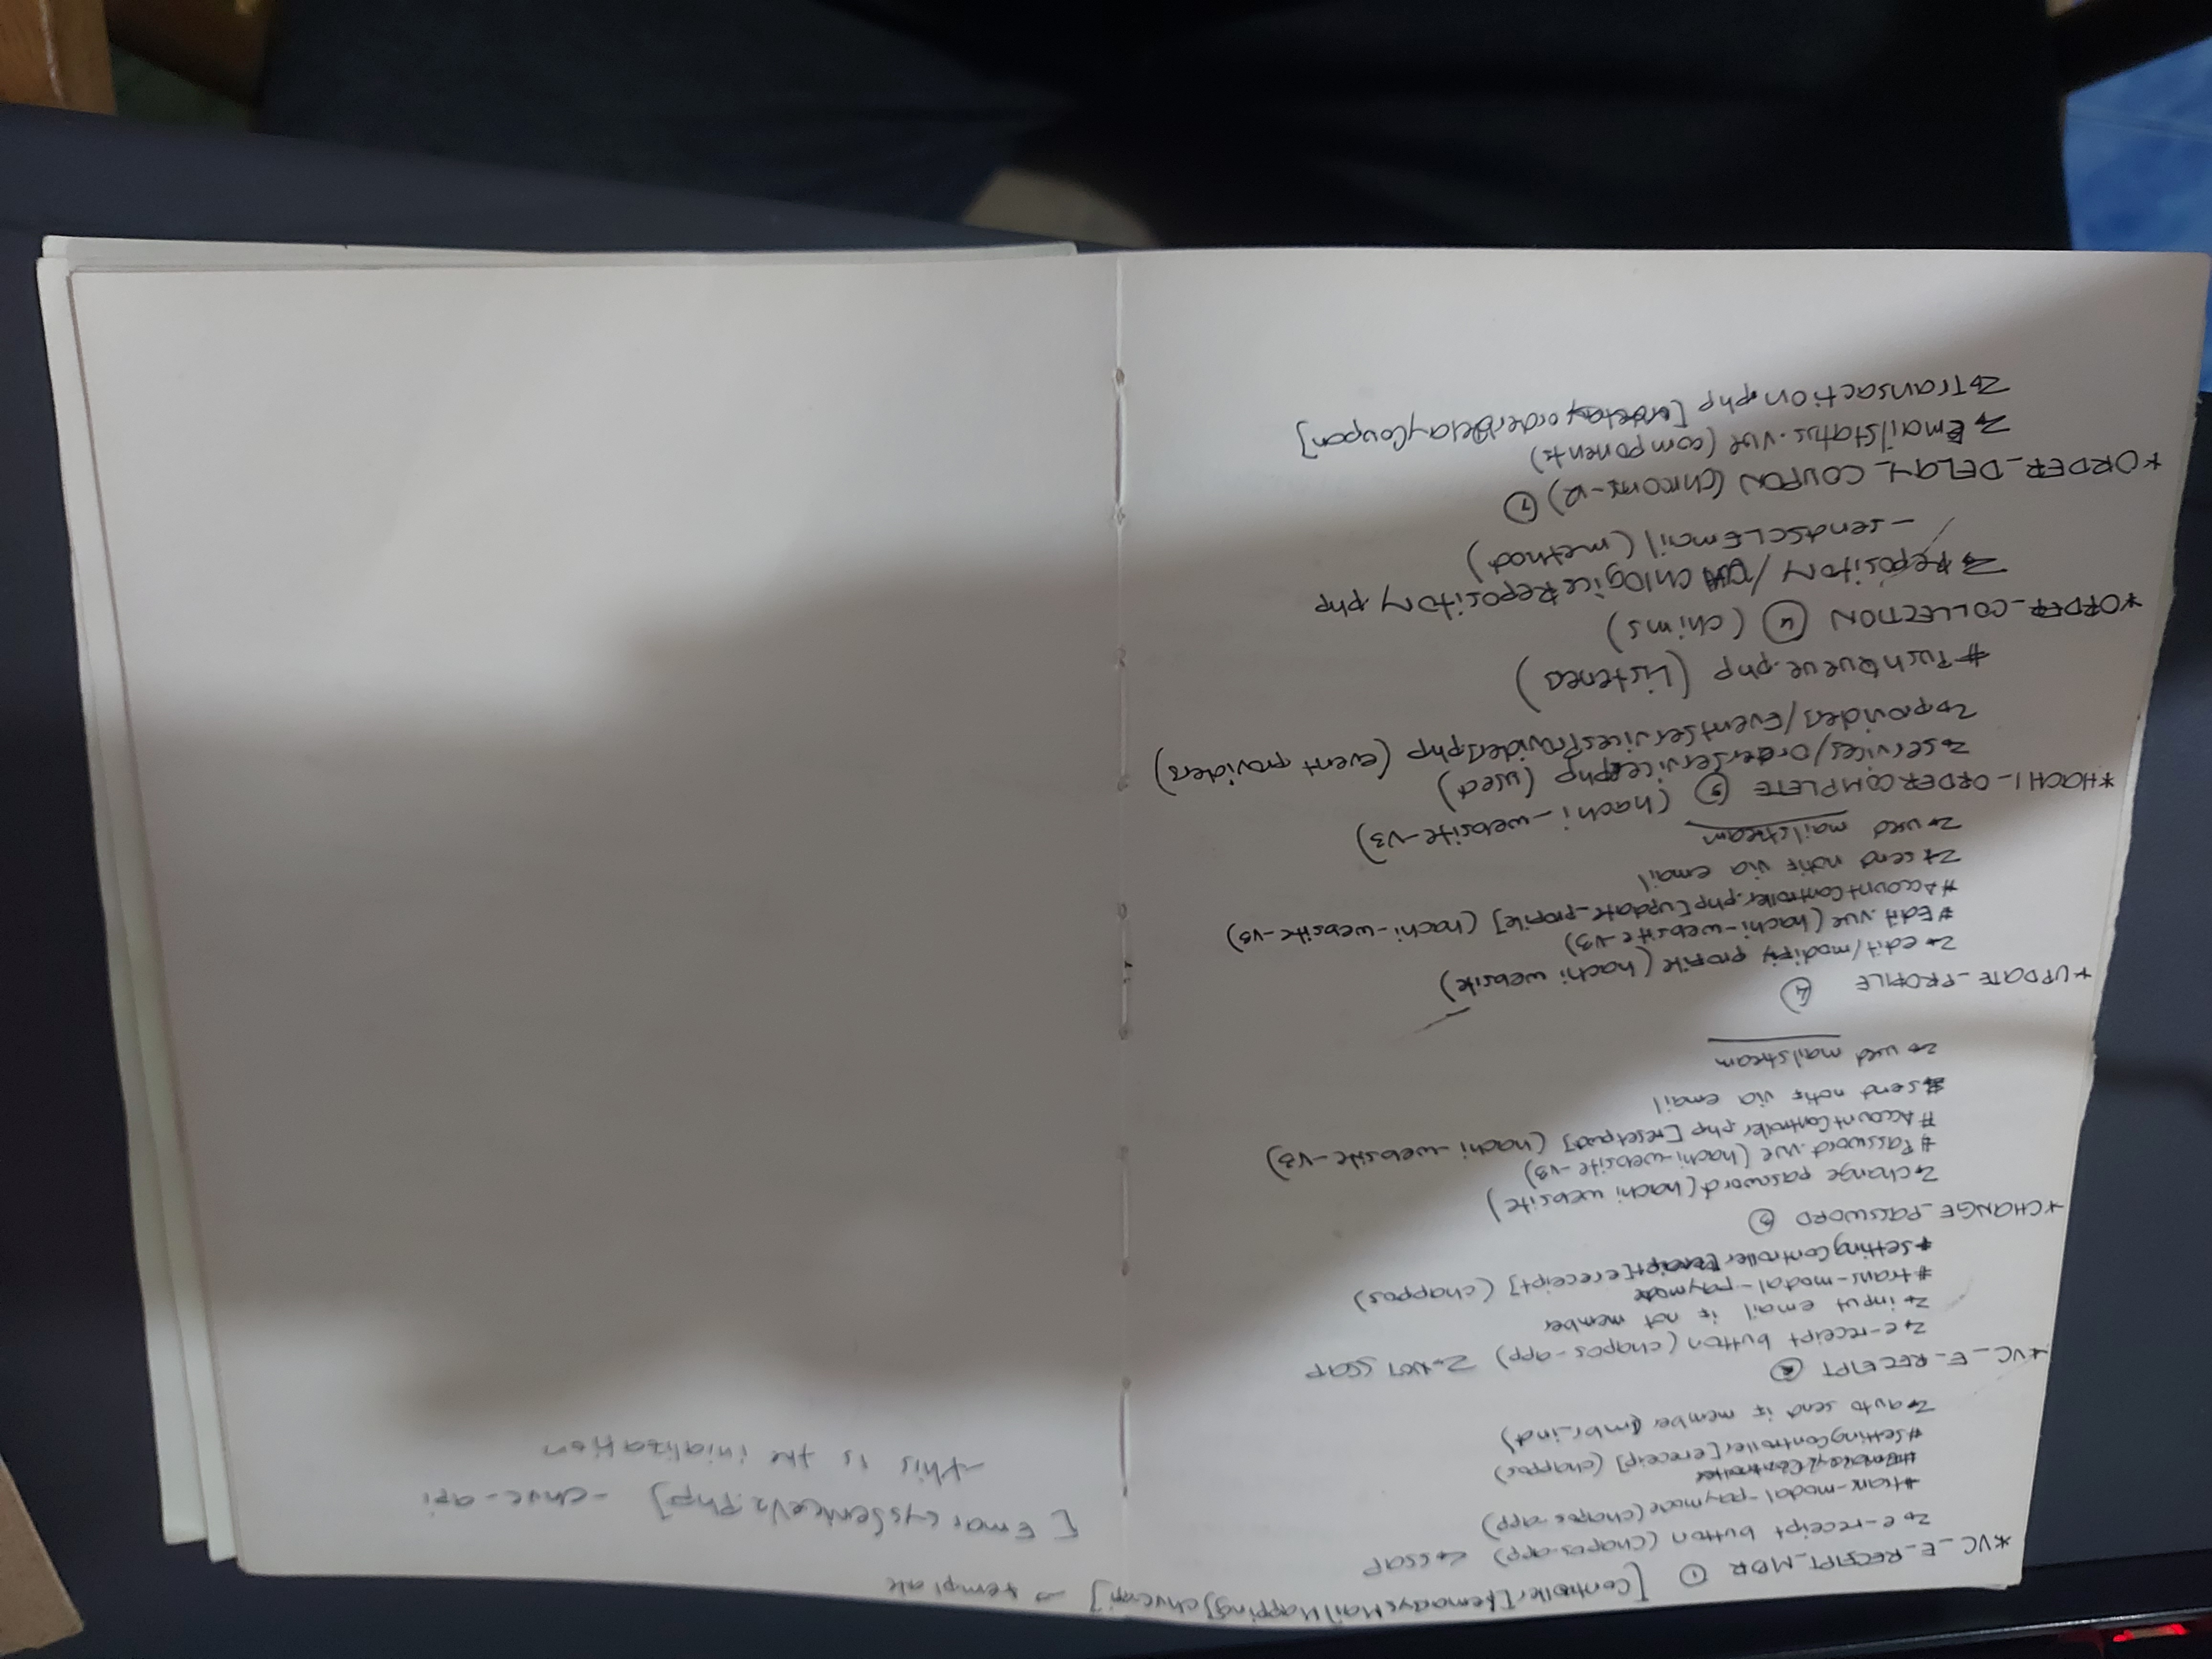 *VC_E_RECEIPT_MBR ① [Controller[EmarsysMailMapping]chvc-api] → template
↳ e-receipt button (chapos-app) ↳ SSAP
↳ e-receipt button (chapos-app)
#trans-modal-paymode (chapos-app)
#SettingController[ereceip] (chappos)
↳ auto send if member (mbr_ind)
*VC_E_RECEIPT ②
↳ e-receipt button (chapos-app) ↳ NOT SSAP
↳ input email if not member
#trans-modal-paymode
#SettingController [ereceipt] (chappos)
*CHANGE_PASSWORD ③
↳ change password (hachi website)
#Password.vue (hachi-website-v3)
#AccountController.php [resetpass] (hachi-website-v3)
#send notif via email
↳ used mailstream
*UPDATE_PROFILE ④
↳ edit/modify profile (hachi website)
#Edit.vue (hachi-website-v3)
#AccountController.php [update_profile] (hachi-website-v3)
↳ send notif via email
↳ used mailstream (hachi-website-v3)
*HACHI_ORDERCOMPLETE ⑤
↳ services/OrderService.php (used)
↳ providers/EventServicesProviders.php (event providers)
#PushQueue.php (Listeners)
*ORDER_COLLECTION (chims)
↳ Repository/ChlogicRepository.php
- sendSCLEmail (method)
*ORDER_DELAY_COUPON (chrooms-v2) ⑦
↳ EmailStatus.vue (components)
↳ Transaction.php [orderDelayCoupon]
[EmarsysServiceV2.php] - chvc-api
-this is the inialization